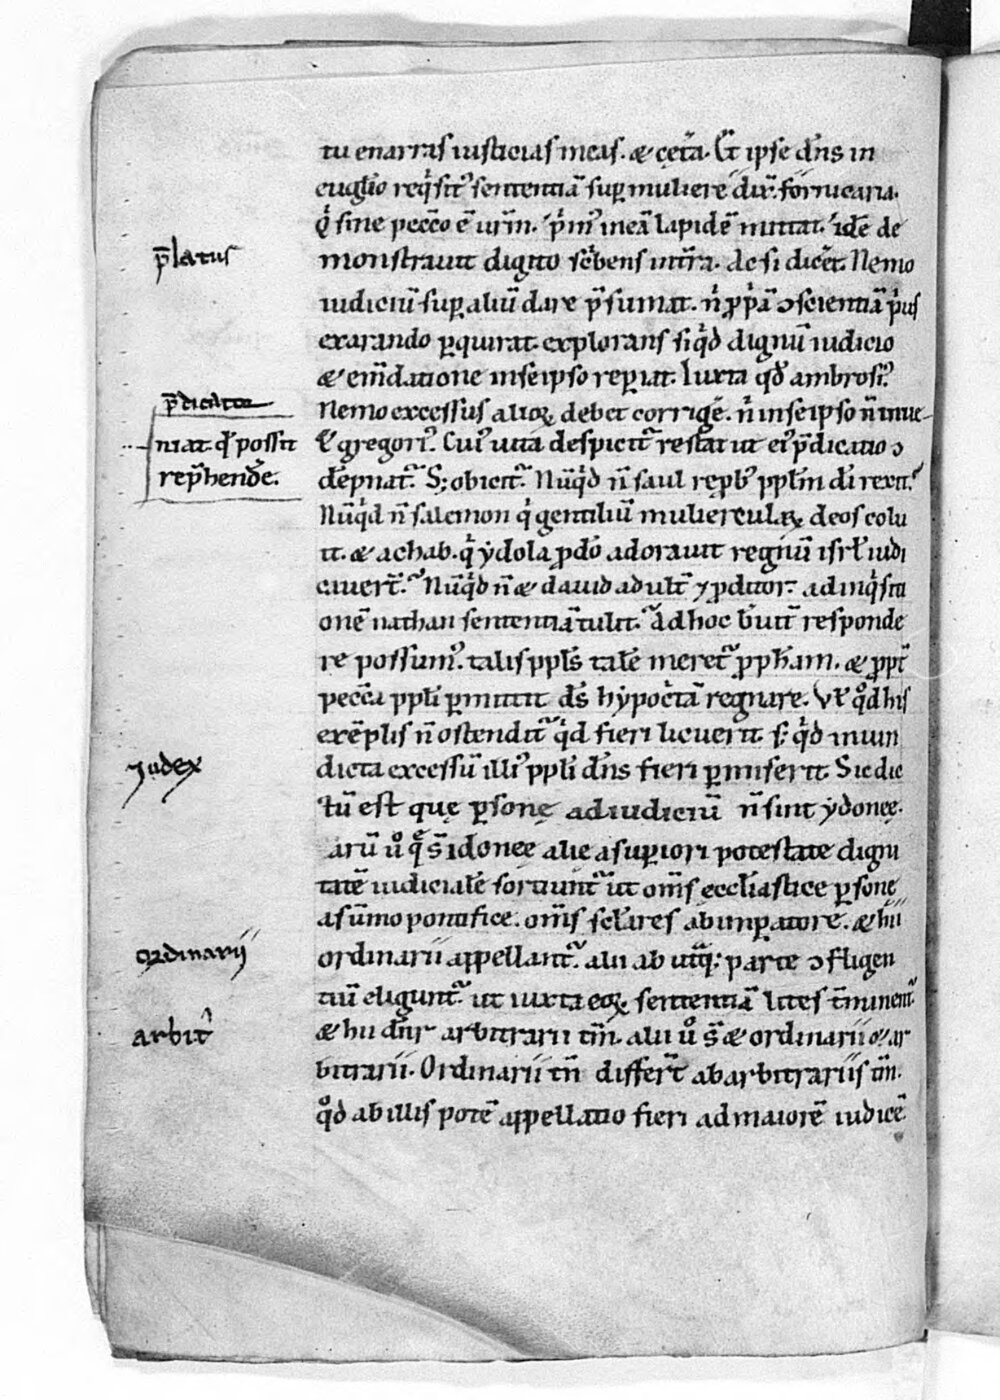 tu enarras iusticias meas. & cetã. Et ipse dñs in
euglio req̇sit᷒ sententiã sup muliere dix̃. fornicaria.
Q̇ sine pecc̃o ẽ ur̃m. ṗm᷒ in eã lapidẽ mittat. idẽ de
p̃latus
monstrauit digito sc̃bens in tr̃a. ac si dicẽt. Nemo
iudiciũ sup aliũ dare p̃sumat. n̓ ꝓp̓ã ↄscientiã p̓us
exarando ꝑquirat. explorans si q̇d dignũ iudicio
& em̃datione in se ipso repiat. Iuxta qd̓ ambrosi᷒.
p̃dicator
Nemo excessus alioꝝ debet corrigẽ. n̓ in se ipso ñ inue-
niat qd̓ possit
t̃ gregori᷒. Cui᷒ uita despicit᷒ restat ut ei᷒ p̃dicatio ↄ
rep̃hendẽ.
dẽpnat᷒. S; obicit᷒. Nũq̇d ñ saul rep̱b᷒ ppl̃m di rexit.
Nũq̇d ñ salemon q̇ gentiliũ muliercularꝝ deos colu
it. & achab. q̇ ydola ꝓdo adorauit regnũ isrl̃ iudi
cauert̃. Nũq̇d ñ & dauid adult̃ ⁊ ꝓditor. ad inq̇siti
onẽ nathan sententiã tulit. ad hoc b̓uit̃ responde
re possum᷒. talis ppl̃s talẽ meret᷒ ꝓph̃am. & ꝓpt̃
pecc̃a ppl̃i ꝑmittit ds̃ hypoc̓tã regnare. Vl̃ qd̓ his
exẽplis ñ ostendit᷒ q̇d fieri licuerit. s; q̇d in uin
Judex
dicta excessũ illi᷒ ppl̃i dñs fieri ꝑmiserit. Sic dic
tũ est quę ꝑsonę ad iudiciũ ñ sint ydonee.
aꝛũ ů q̃ s̃ idonee alie a supiori potestate digni
tatẽ iudicialẽ sortiunt᷒ ut om̃s eccl̃iastice ꝑsonę
a sũmo pontifice. om̃s scl̃ares ab inpatore. & hii
ordinarii
ordinarii appellant᷒. alii ab utraq; parte ↄfligen
tiũ eligunt᷒ ut iuxta eoꝝ sententiã lites t̃minent᷒.
arbit̓
& hii dn̓r arbitrarii tm̃. alii ů s̃ & ordinarii & ar
bitrarii. Ordinarii tñ differt̃ ab arbitrariis tm̃.
qd̓ ab illis potẽ appellatio fieri ad maiorẽ iudicẽ